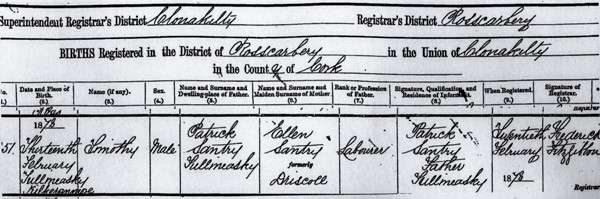 Superintendent Registrar's District Clonakilty Registrar's District Rosscarbery
BIRTHS Registered in the District of Rosscarbery in the Union of Clonakilty
in the County of Cork
Date and Place of Birth. Name (if any). Sex. Name and Surname and Dwelling-place of Father. Name and Surname and Maiden Surname of Mother. Rank or Profession of Father. Signature, Qualification, and Residence of Informant. When Registered. Signature of Registrar.
(2.) (3.) (4.) (5.) (6.) (7.) (8.) (9.) (10.)
1878
51 Thirteenth Timothy Male Patrick Ellen Labourer Patrick Twentieth Frederick
February Santry Santry Santry February Fitzgibbon
Tullmeasky Tullmeasky formerly Father 1878
Driscoll Tullmeasky